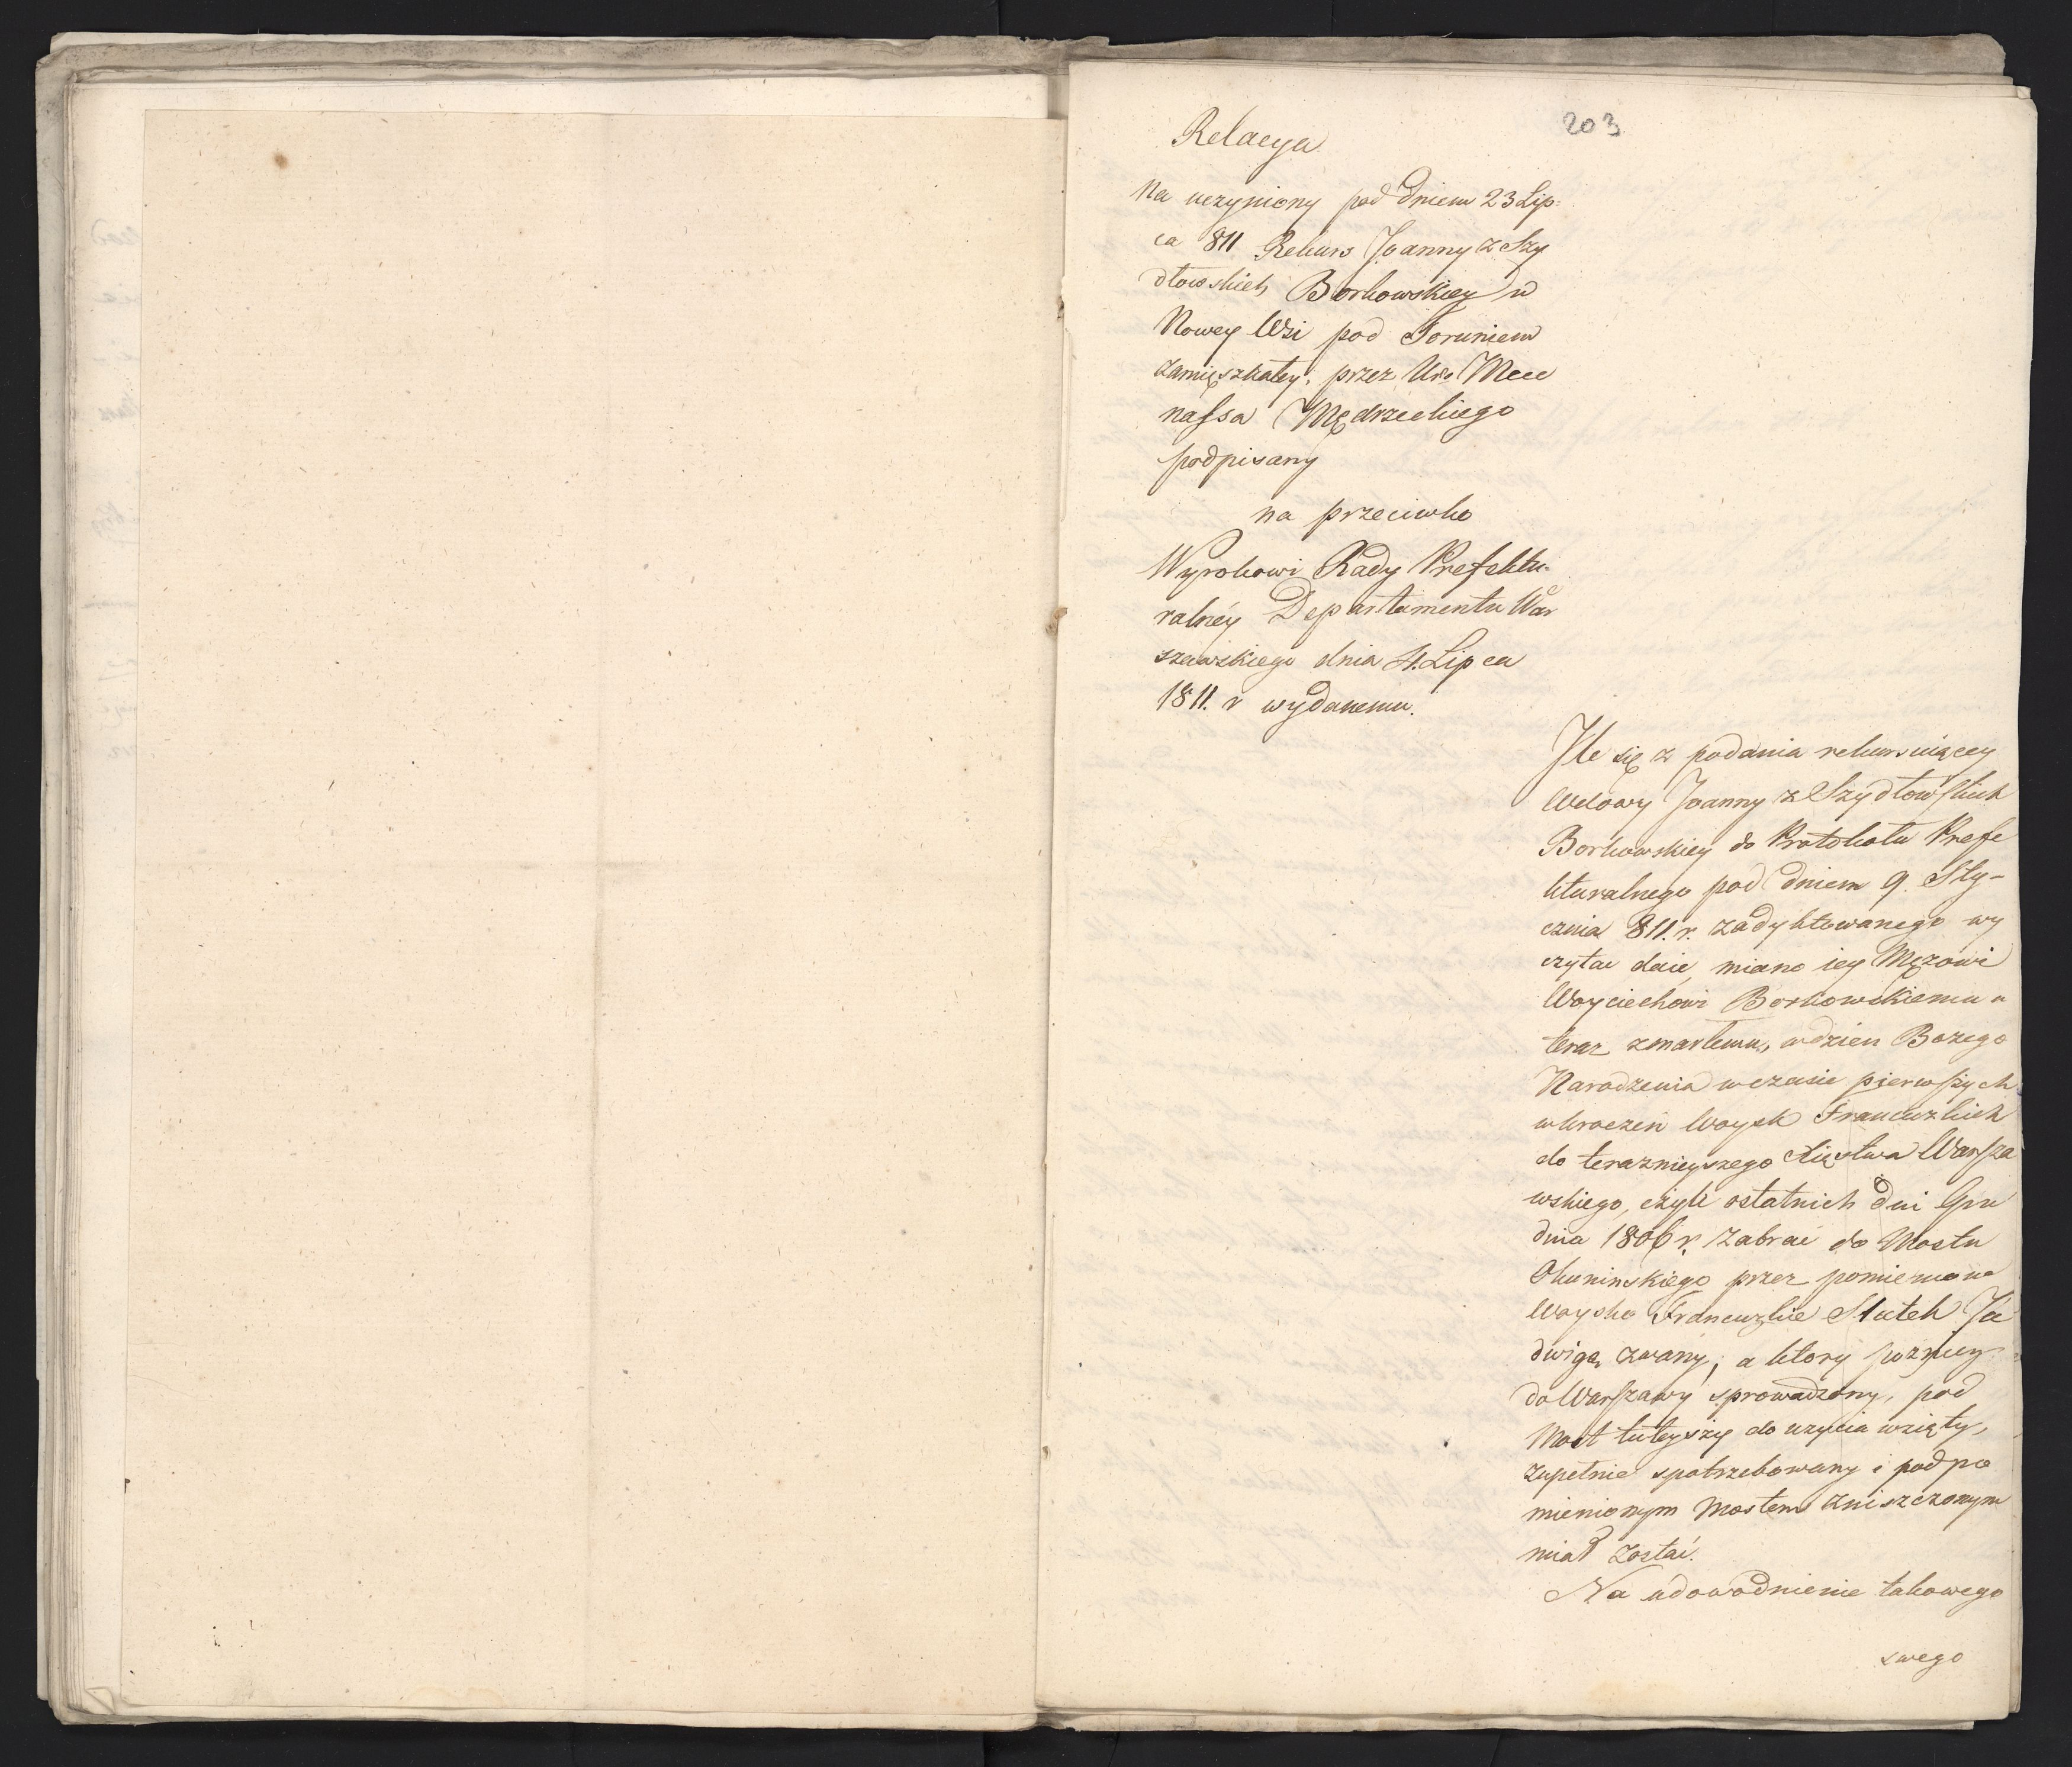 203
Relacya
Na uczyniony pod dniem 23 Lip-
ca 811 Rekurs Joanny z Szy
dłowskich Borkowskiey w
Nowey Wsi pod Toruniem
zamięszkałey, przez Uro Mece
nassa Mędrzeckiego
podpisany
na przeciwko
Wyrokowi Rady Prefektu-
ralney Departamentu War
szawskiego dnia 4. Lipca
1811. r wydanemu.
Ile się z podania rekursuiącey
Wdowy Joanny z Szydłowskich
Borkowskiey do Protokołu Prefe
kturalnego pod dniem 9. Sty-
cznia 811. r. zadyktowanego wy
czytać daie, miano iey Mężowi
Woyciechowi Borkowskiemu a
teraz zmarłemu, w dzien Bożego
Narodzenia w czasie pierwszych
wkroczeń Woysk Francuzkich
do teraznieyszego Xięstwa Warsza
wskiego, czyli ostatnich dni Gru
dnia 1806 r. zabrać do Mostu
Okuninskiego przez pomienione
Woysko Francuzkie Statek Ja
dwigą zwany; a ktory pozniey
do Warszawy sprowadzony, pod
Most tuteyszy do uzycia wzięty,
zupełnie spotrzebowany i pod po
mienionym Mostem zniszczonym
miał zostać.
Na udowodnienie takowego
swego